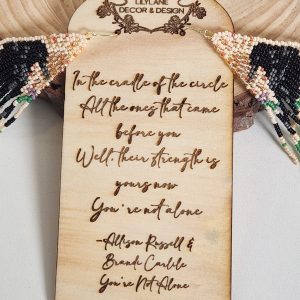 LILYLANE
DECOR & DESIGN
In the cradle of the circle
All the ones that came
before you
Well, their strength is
yours now
You're not alone
-Allison Russell &
Brandi Carlile
You're Not Alone